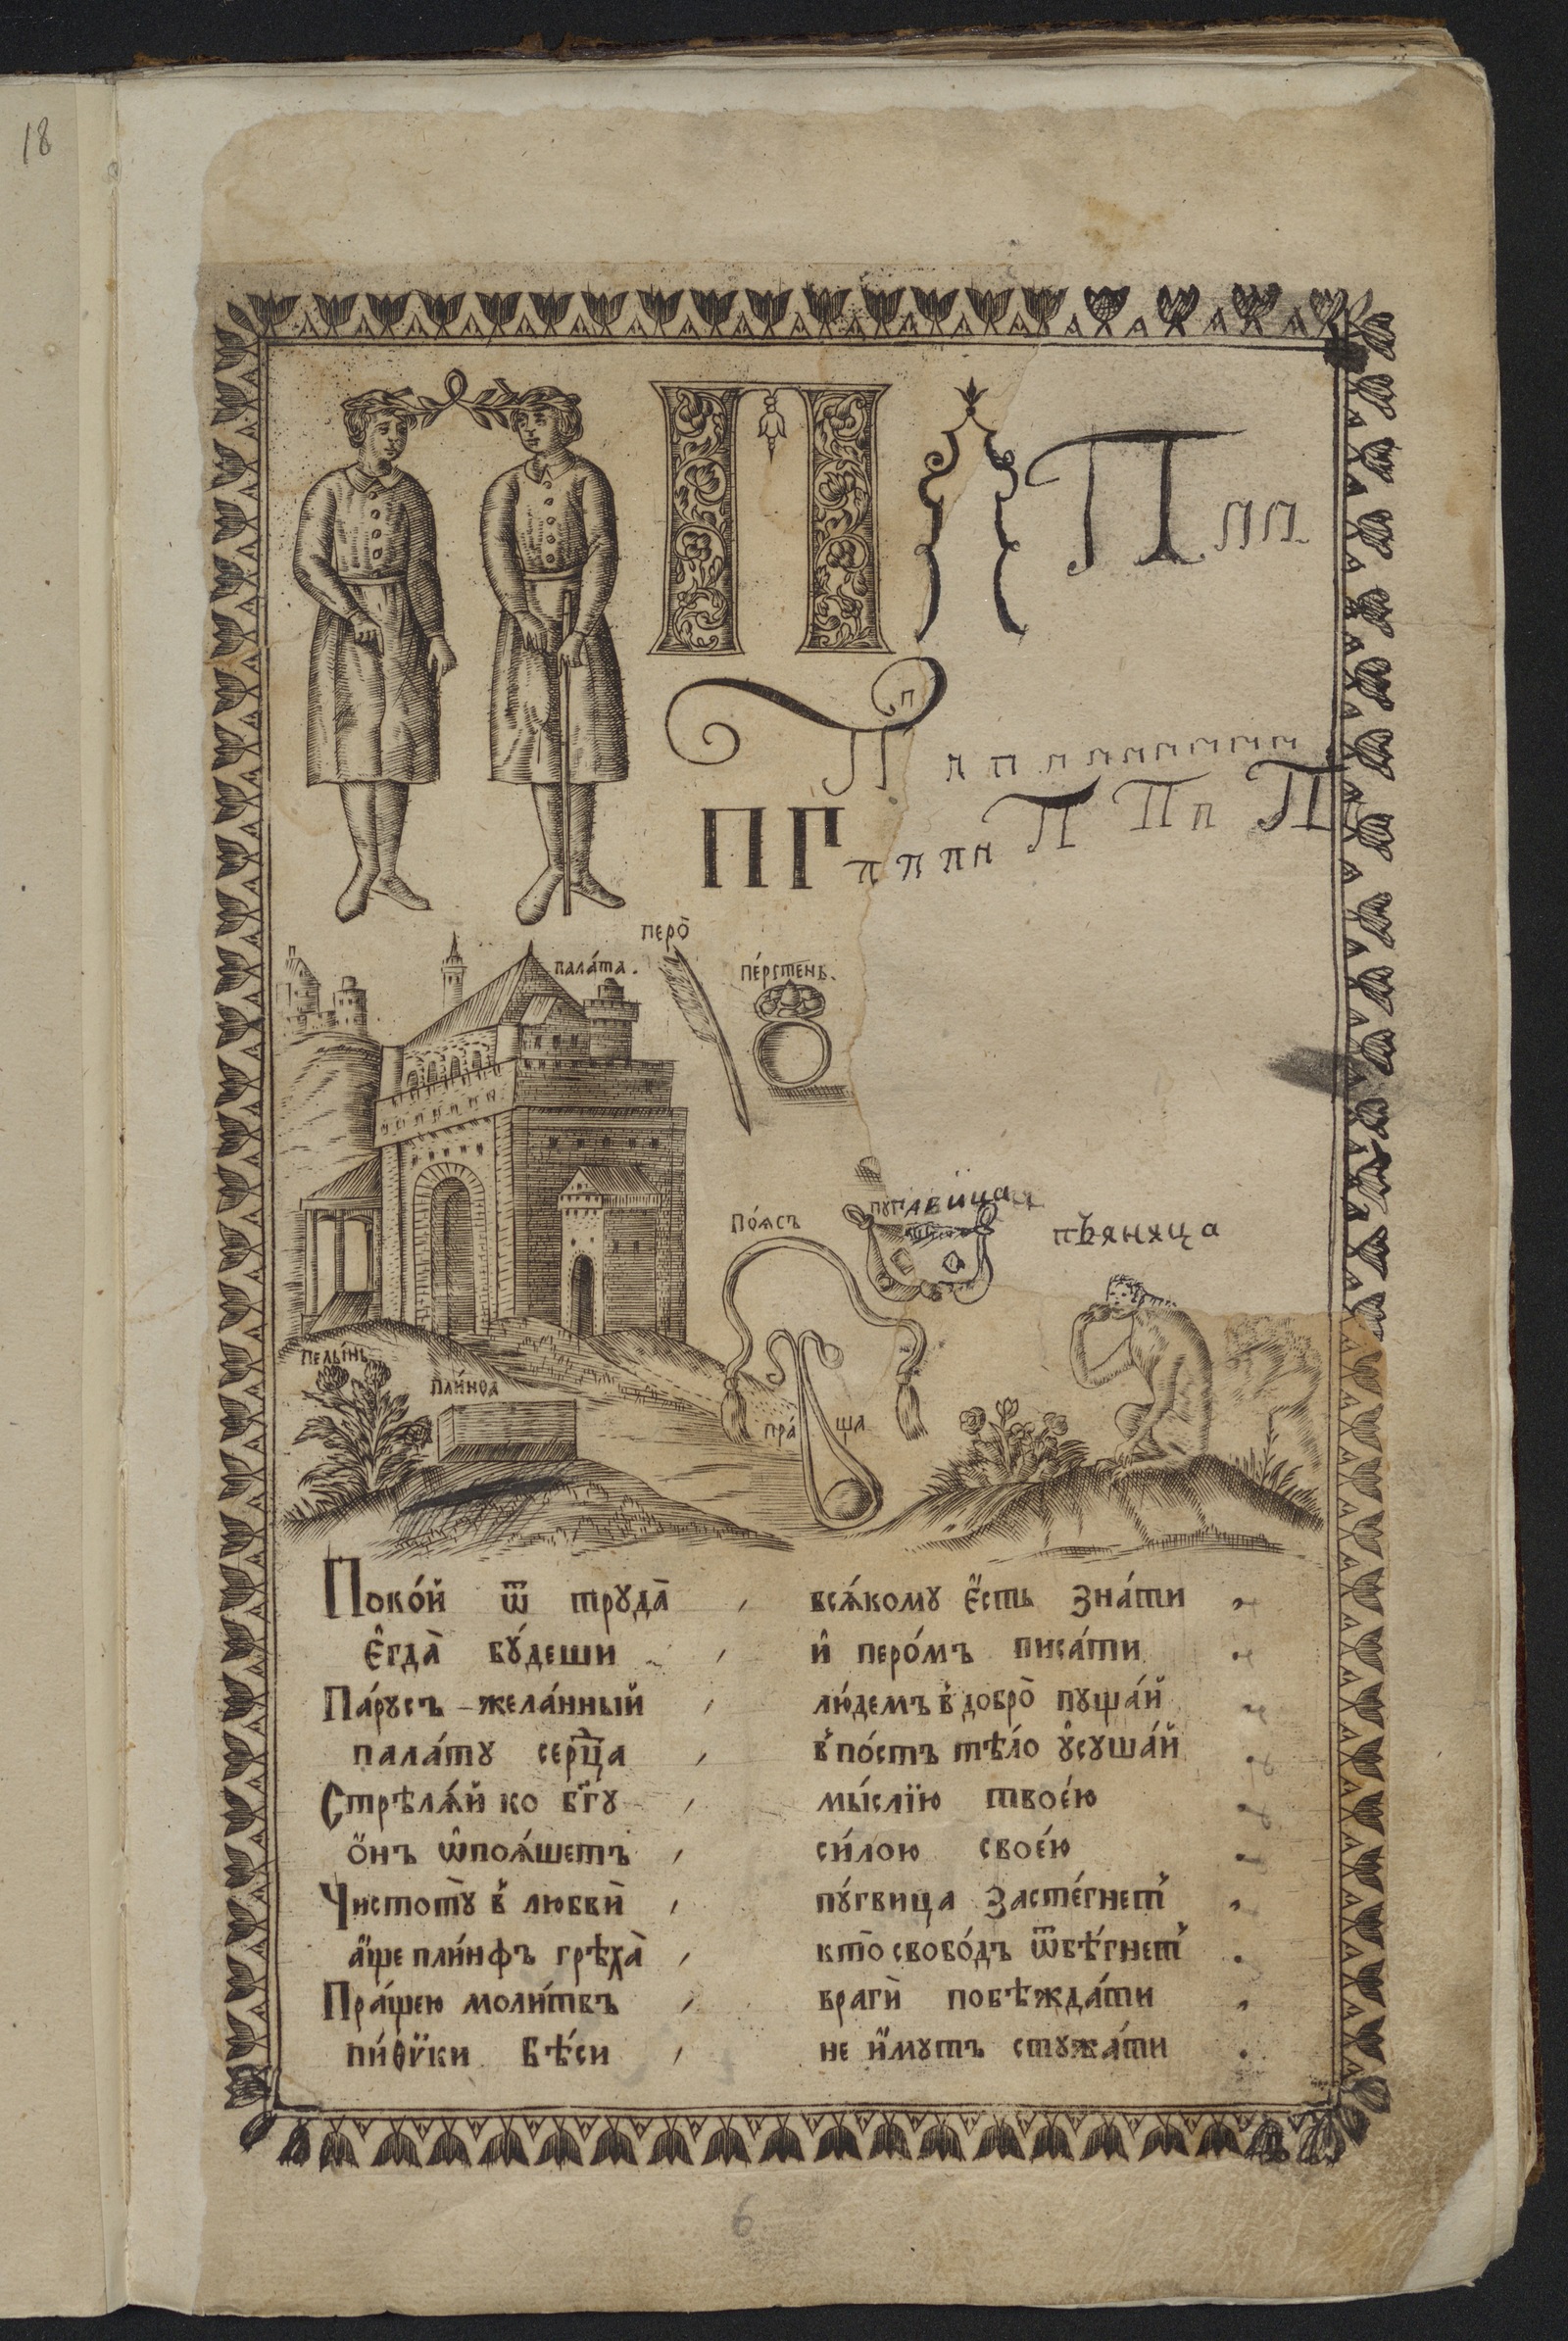 18
П П П п п
П п п п п п п п п п п п
П Г п п п н П П п П
перо̀
пала́та.
пе́рстень.
По́ѧсъ
пугавица
пѣяняца
пелы́нь
пли́нѳа
пра́ ща
Поко́й ѿ труда̀ , всѧ́кому є҆́сть зна́ти
є҆гда̀ бу́деши , и҆ перо́мъ писа́ти
Па́русъ жела́нный , лю́демъ в̾ добро̀ пуща́й
пала́ту се́рдца , в̾ по́стъ тѣ́ло ᲂу҆суша́й
Стрѣлѧ́й ко бг҃у , мы́слїю твое́ю
ѻ҆́нъ ѡ҆поѧ́шетъ , си́лою свое́ю
Чистоту̀ в̾ любви̂ , пу́гвица засте́гнет̾
а҆́ще пли́нфъ грѣха̀ , кто̀ свобо́дъ ѿбѣ́гнет̾
Пра́щею моли́твъ , враги̂ побѣжда́ти
пи́ѳѷки бѣ́си , не и҆́мутъ стужа́ти
6